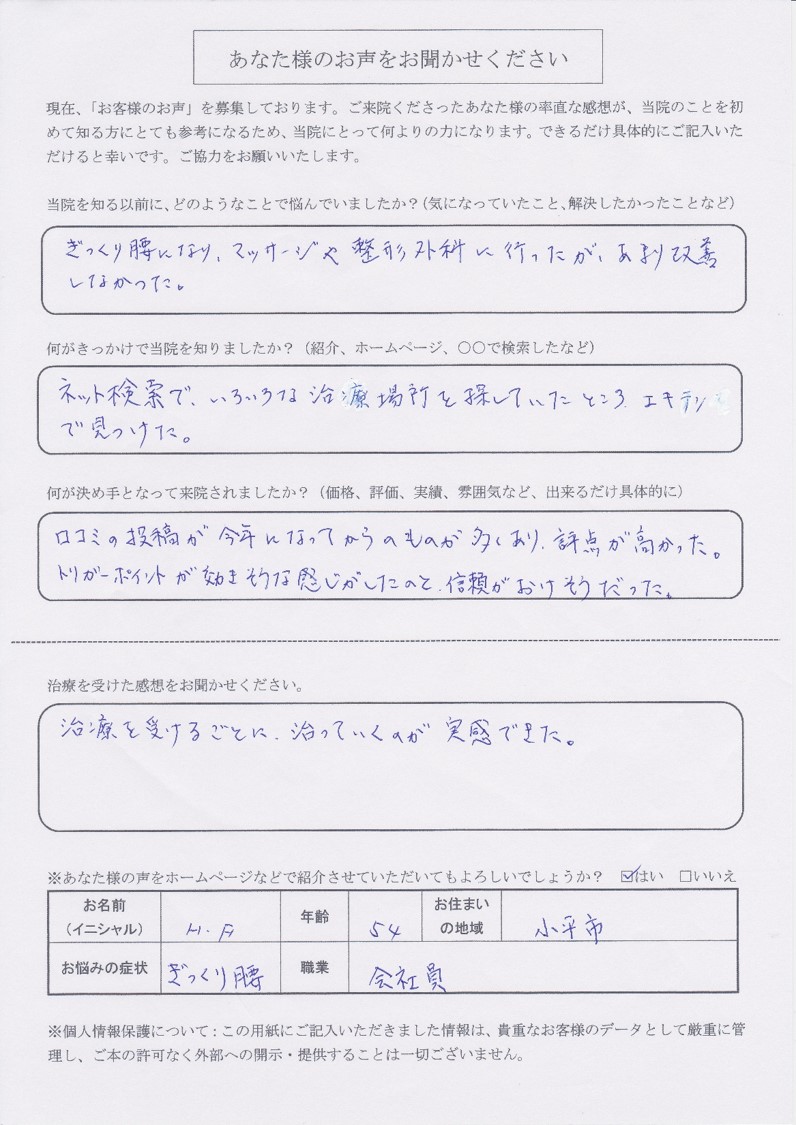 あなた様のお声をお聞かせください
現在、「お客様のお声」を募集しております。ご来院くださったあなた様の率直な感想が、当院のことを初
めて知る方にとても参考になるため、当院にとって何よりの力になります。できるだけ具体的にご記入いた
だけると幸いです。ご協力をお願いいたします。
当院を知る以前に、どのようなことで悩んでいましたか？（気になっていたこと、解決したかったことなど）
ぎっくり腰になり、マッサージや整形外科に行ったが、あまり改善
しなかった。
何がきっかけで当院を知りましたか？（紹介、ホームページ、〇〇で検索したなど）
ネット検索で、いろいろな治療場所を探していたところ、エキテン
で見つけた。
何が決め手となって来院されましたか？（価格、評価、実績、雰囲気など、出来るだけ具体的に）
口コミの投稿が今年になってからのものが多くあり、評点が高かった。
トリガーポイントが効きそうな感じがしたのと、信頼がおけそうだった。
治療を受けた感想をお聞かせください。
治療を受けるごとに、治っていくのが実感できた。
※あなた様の声をホームページなどで紹介させていただいてもよろしいでしょうか？ ☑はい □いいえ
お名前（イニシャル） H.A 年齢 54 お住まいの地域 小平市
お悩みの症状 ぎっくり腰 職業 会社員
※個人情報保護について：この用紙にご記入いただきました情報は、貴重なお客様のデータとして厳重に管
理し、ご本の許可なく外部への開示・提供することは一切ございません。